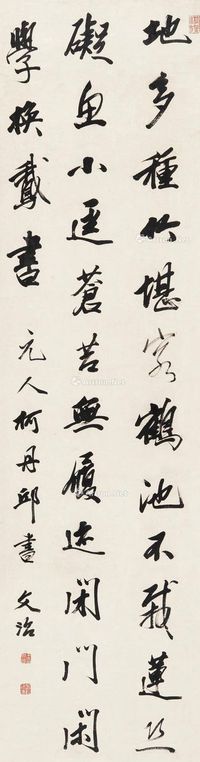 地多種竹堪容鶴池不栽蓮恐
礙魚小逕蒼苔無履迹閑門閑
學換鵞書 元人柯丹邱書 文治